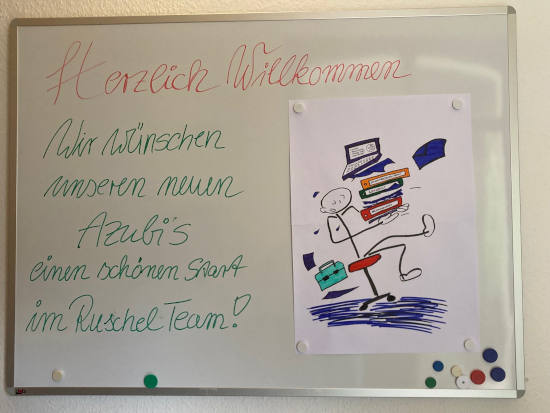 Herzlich Willkommen
Wir wünschen
unseren neuen
Azubi's
einen schönen Start
im Ruschel Team!